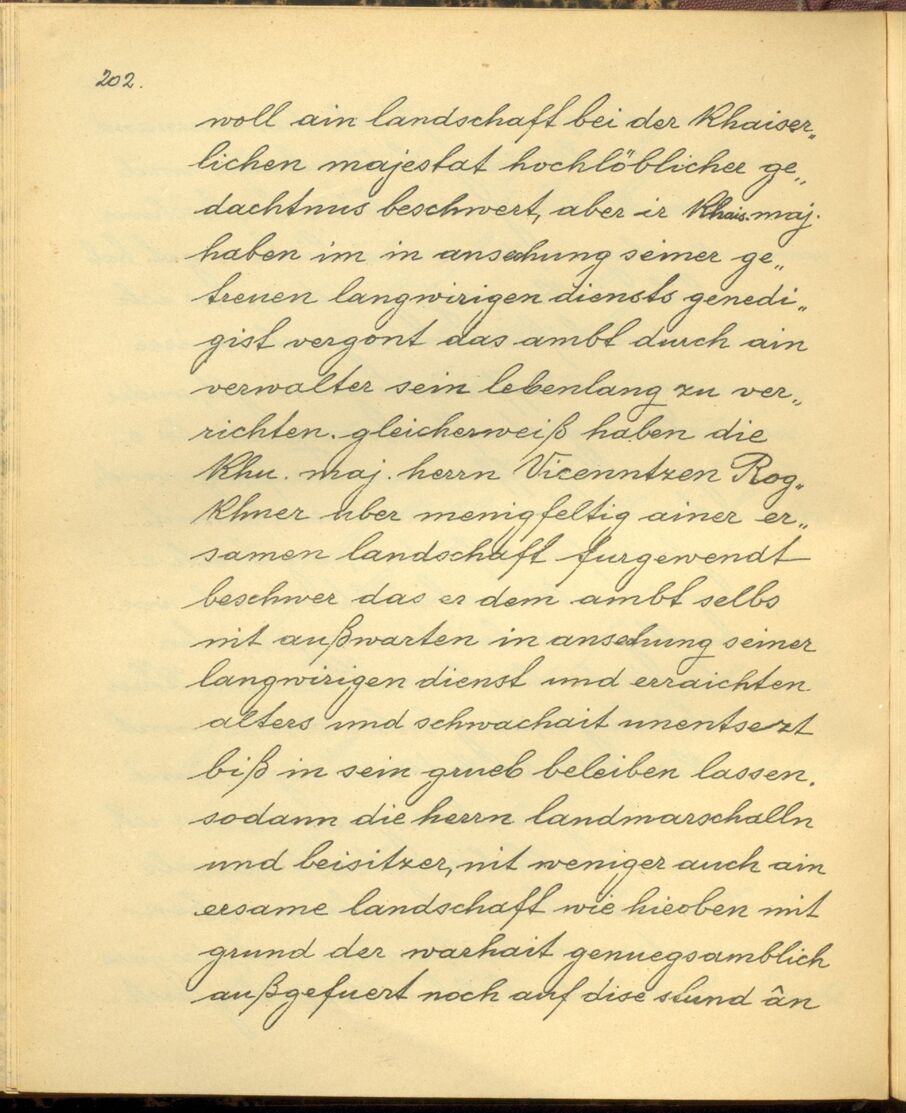 202.
woll ain landschaft bei der Khaiser„
lichen majestat hochlöblicher ge„
dachtnus beschwert, aber ir Khais. maj.
haben im in ansechung seiner ge„
treuen langwirigen diensts genedi„
gist vergont das ambt durch ain
verwalter sein lebenlang zu ver„
richten. gleicherweiß haben die
Khu. maj. herrn Vicenntzen Rog„
Khner uber menigfeltig ainer er„
samen landschaft furgewendt
beschwer das er dem ambt selbs
nit außwarten in ansechung seiner
langwirigen dienst und erraichten
alters und schwachait unentsezt
biß in sein grueb beleiben lassen.
sodann die herrn landmarschalln
und beisitzer, nit weniger auch ain
ersame landschaft wie hieoben mit
grund der warhait genuegsamblich
außgefuert noch auf dise stund ân